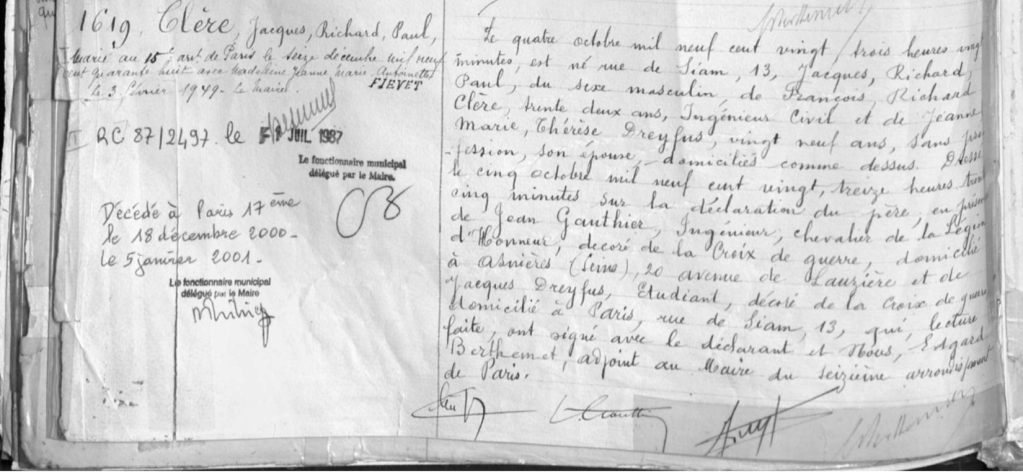 1619 Clère, Jacques, Richard, Paul,
Marié au 15e art de Paris le seize décembre mil neuf
cent quarante huit avec Madeleine Jeanne Marie Antoinette
FIEVET
le 3 février 1949 - Le Maire.
RC 87/2497. le JUIL 1987
Le fonctionnaire municipal
délégué par le Maire.
Décédé à Paris 17ème
le 18 décembre 2000-
le 5 janvier 2001-
Le fonctionnaire municipal
délégué par le Maire
Le quatre octobre mil neuf cent vingt, trois heures vingt
minutes, est né rue de Siam, 13, Jacques, Richard,
Paul, du sexe masculin, de François, Richard
Clère, trente deux ans, Ingénieur Civil et de Jeanne
Marie, Thérèse Dreyfus, vingt neuf ans, sans pro
-fession, son épouse, domiciliés comme dessus. Dressé
le cinq octobre mil neuf cent vingt, treize heures trente
cinq minutes sur la déclaration du père, en présence
de Jean Gauthier, Ingénieur, chevalier de la Légion
d'Honneur, décoré de la Croix de guerre, domicilié
à Asnières (Seine), 20 avenue de Lauzière et de
Jacques Dreyfus, Etudiant, décoré de la Croix de guerre
domicilié à Paris, rue de Siam, 13, qui, lecture
faite, ont signé avec le déclarant et Nous, Edgard
Berthemet, adjoint au Maire du seizième arrondissement
de Paris.